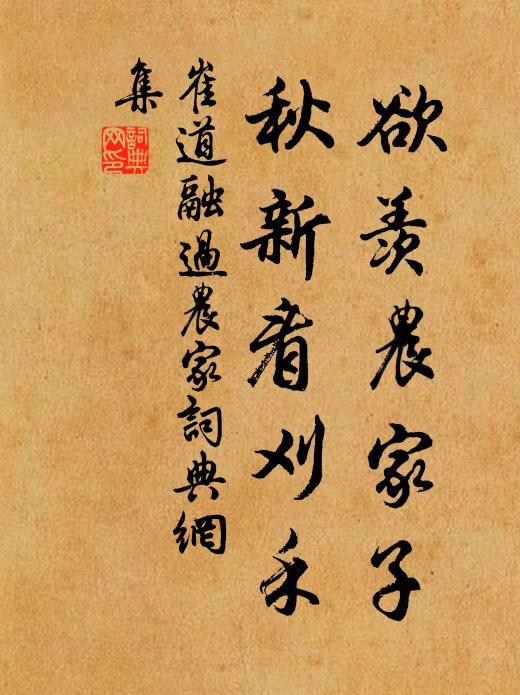 欲羡農家子
秋新看刈禾
崔道融過農家詞典網
集
詞典
网印